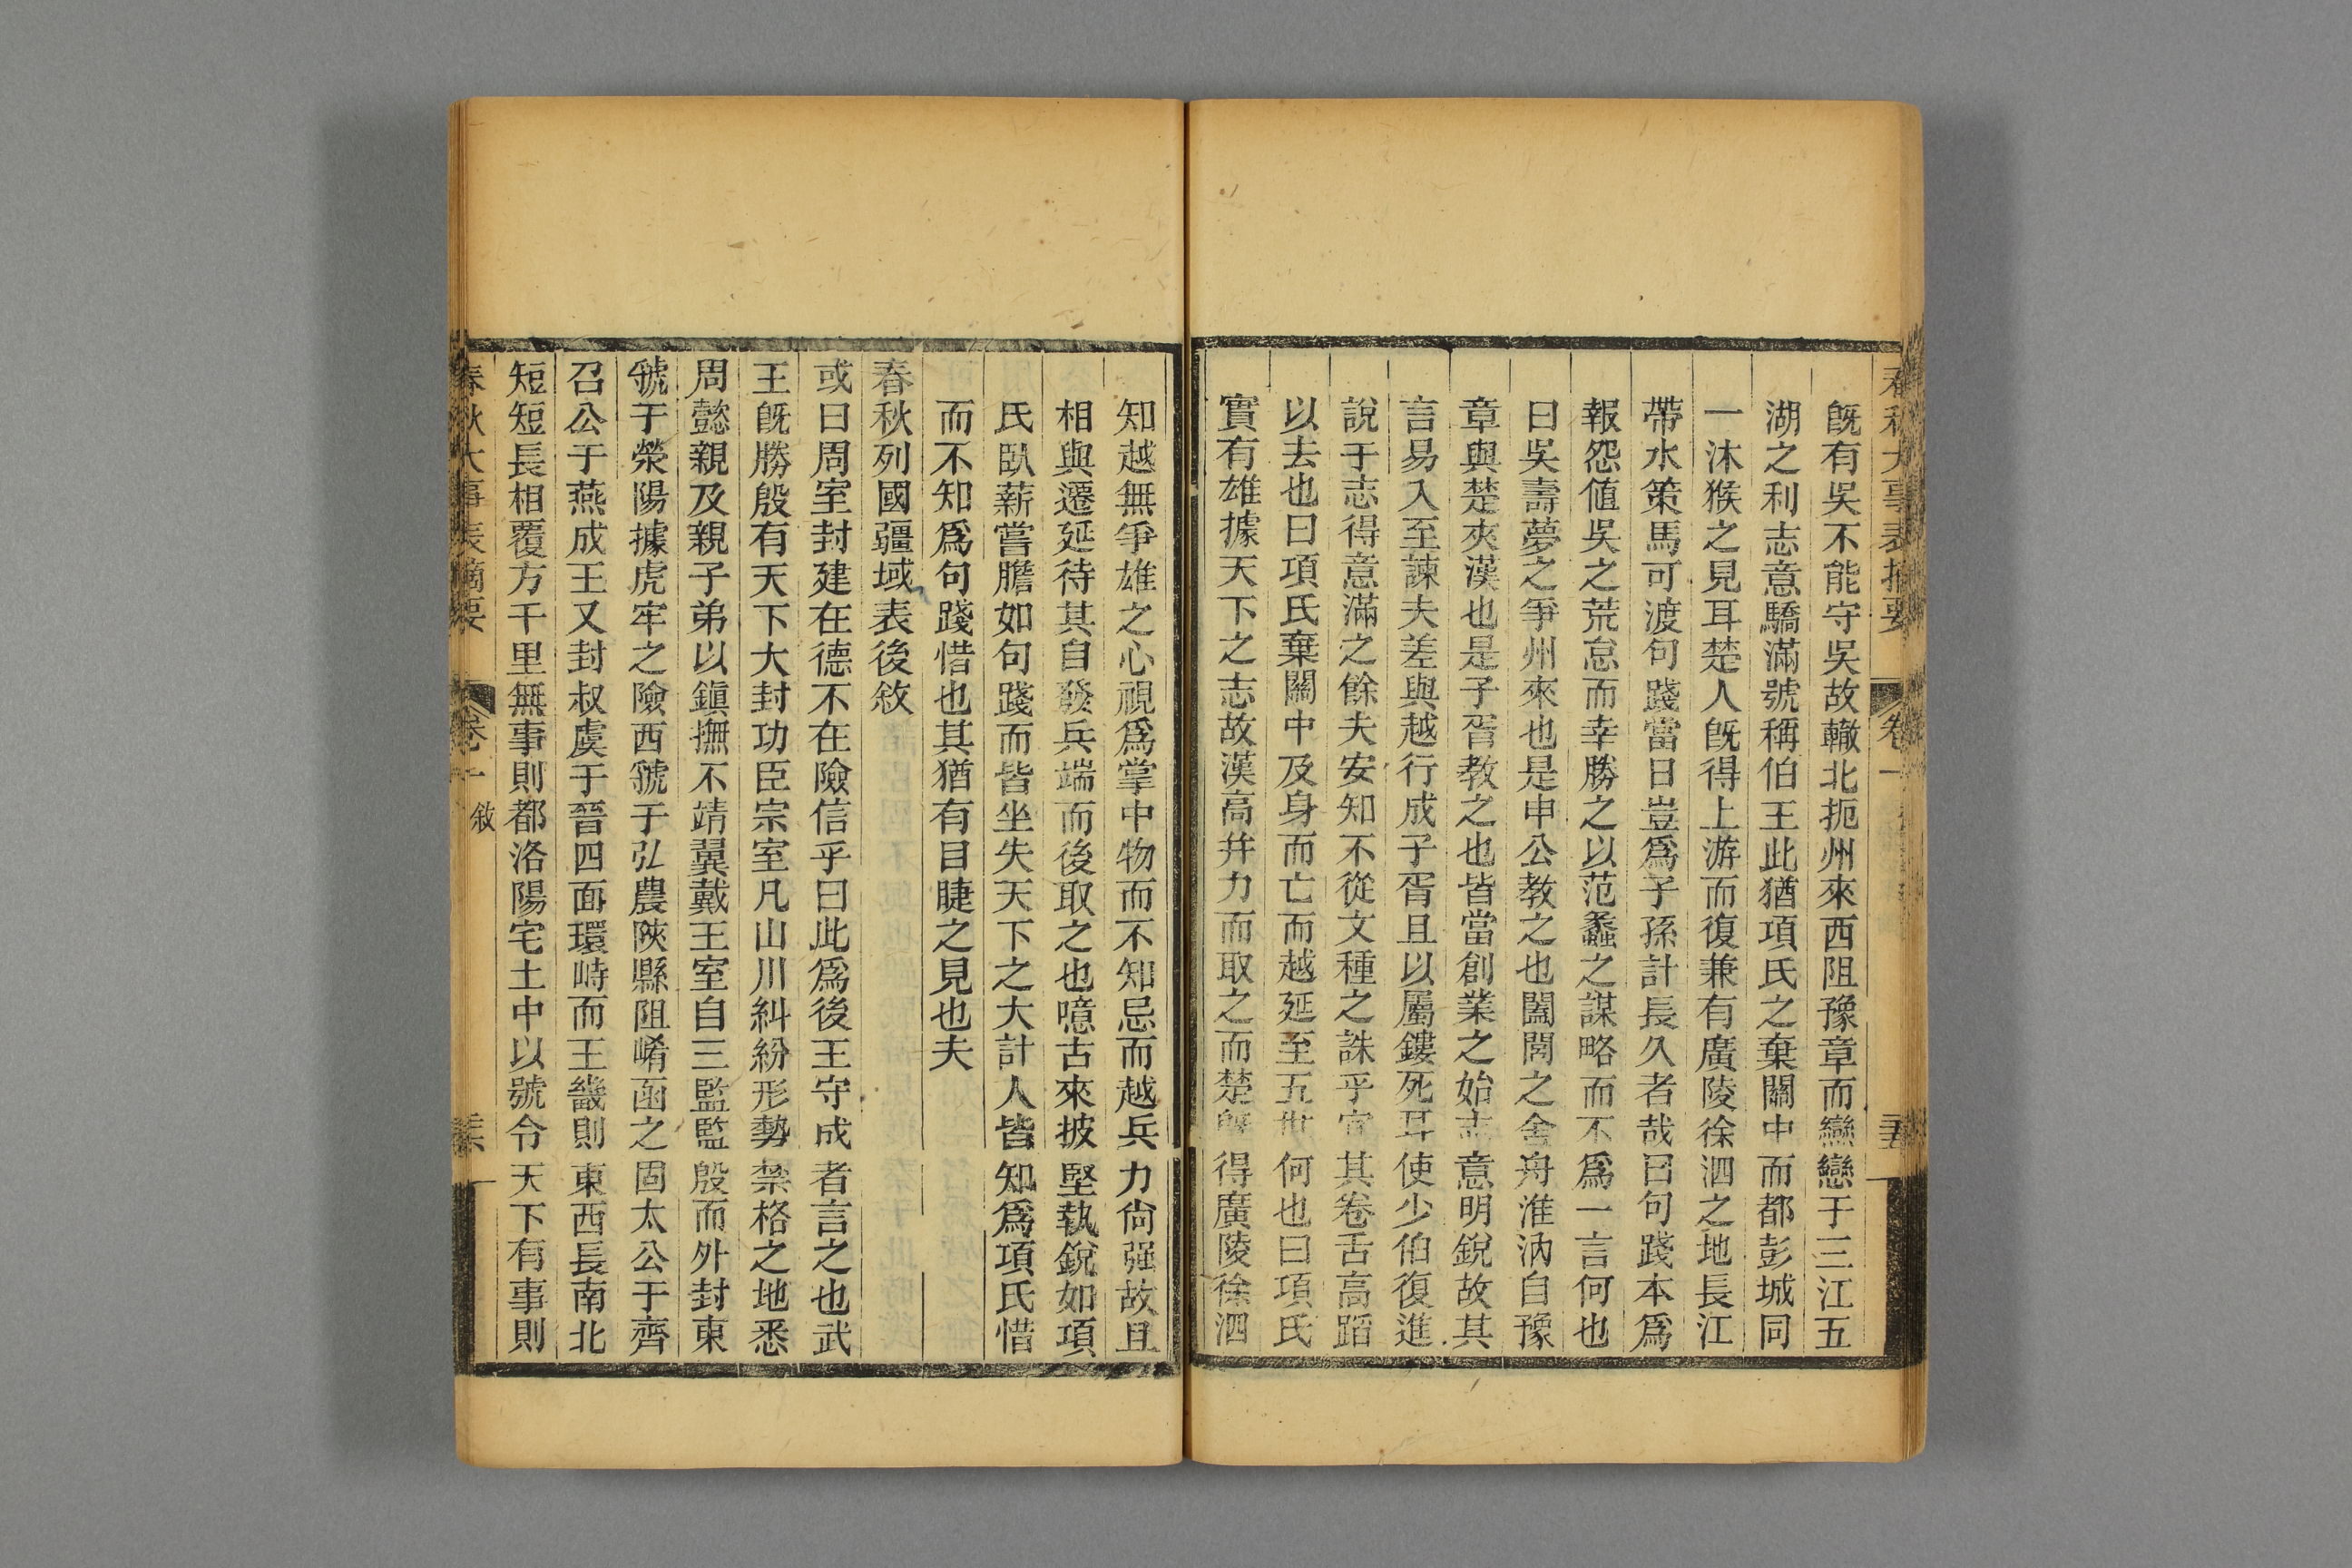 春秋大事表摘要 卷一 三五
旣有吳不能守吳故轍北扼州來西阻豫章而戀戀于三江五
湖之利志意驕滿號稱伯王此猶項氏之棄關中而都彭城同
一沐猴之見耳楚人旣得上游而復兼有廣陵徐泗之地長江
帶水策馬可渡句踐當日豈爲子孫計長久者哉曰句踐本爲
報怨値吳之荒怠而幸勝之以范蠡之謀略而不爲一言何也
曰吳壽夢之爭州來也是申公敎之也闔閭之舍舟淮汭自豫
章與楚夾漢也是子胥敎之也皆當創業之始志意明銳故其
言易入至諫夫差與越行成子胥且以屬鏤死耳使少伯復進
說于志得意滿之餘夫安知不從文種之誅乎宜其卷舌高蹈
以去也曰項氏棄關中及身而亡而越延至五世何也曰項氏
實有雄據天下之志故漢高幷力而取之而楚旣得廣陵徐泗
知越無爭雄之心視爲掌中物而不知忌而越兵力尙强故且
相與遷延待其自發兵端而後取之也噫古來披堅執銳如項
氏臥薪嘗膽如句踐而皆坐失天下之大計人皆知爲項氏惜
而不知爲句踐惜也其猶有目睫之見也夫
春秋列國疆域表後敘
或曰周室封建在德不在險信乎曰此爲後王守成者言之也武
王旣勝殷有天下大封功臣宗室凡山川糾紛形勢禁格之地悉
周懿親及親子弟以鎭撫不靖翼戴王室自三監監殷而外封東
虢于滎陽據虎牢之險西虢于弘農陝縣阻崤函之固太公于齊
召公于燕成王又封叔虞于晉四面環峙而王畿則東西長南北
短短長相覆方千里無事則都洛陽宅土中以號令天下有事則
春秋大事表摘要 卷一 敘 三六